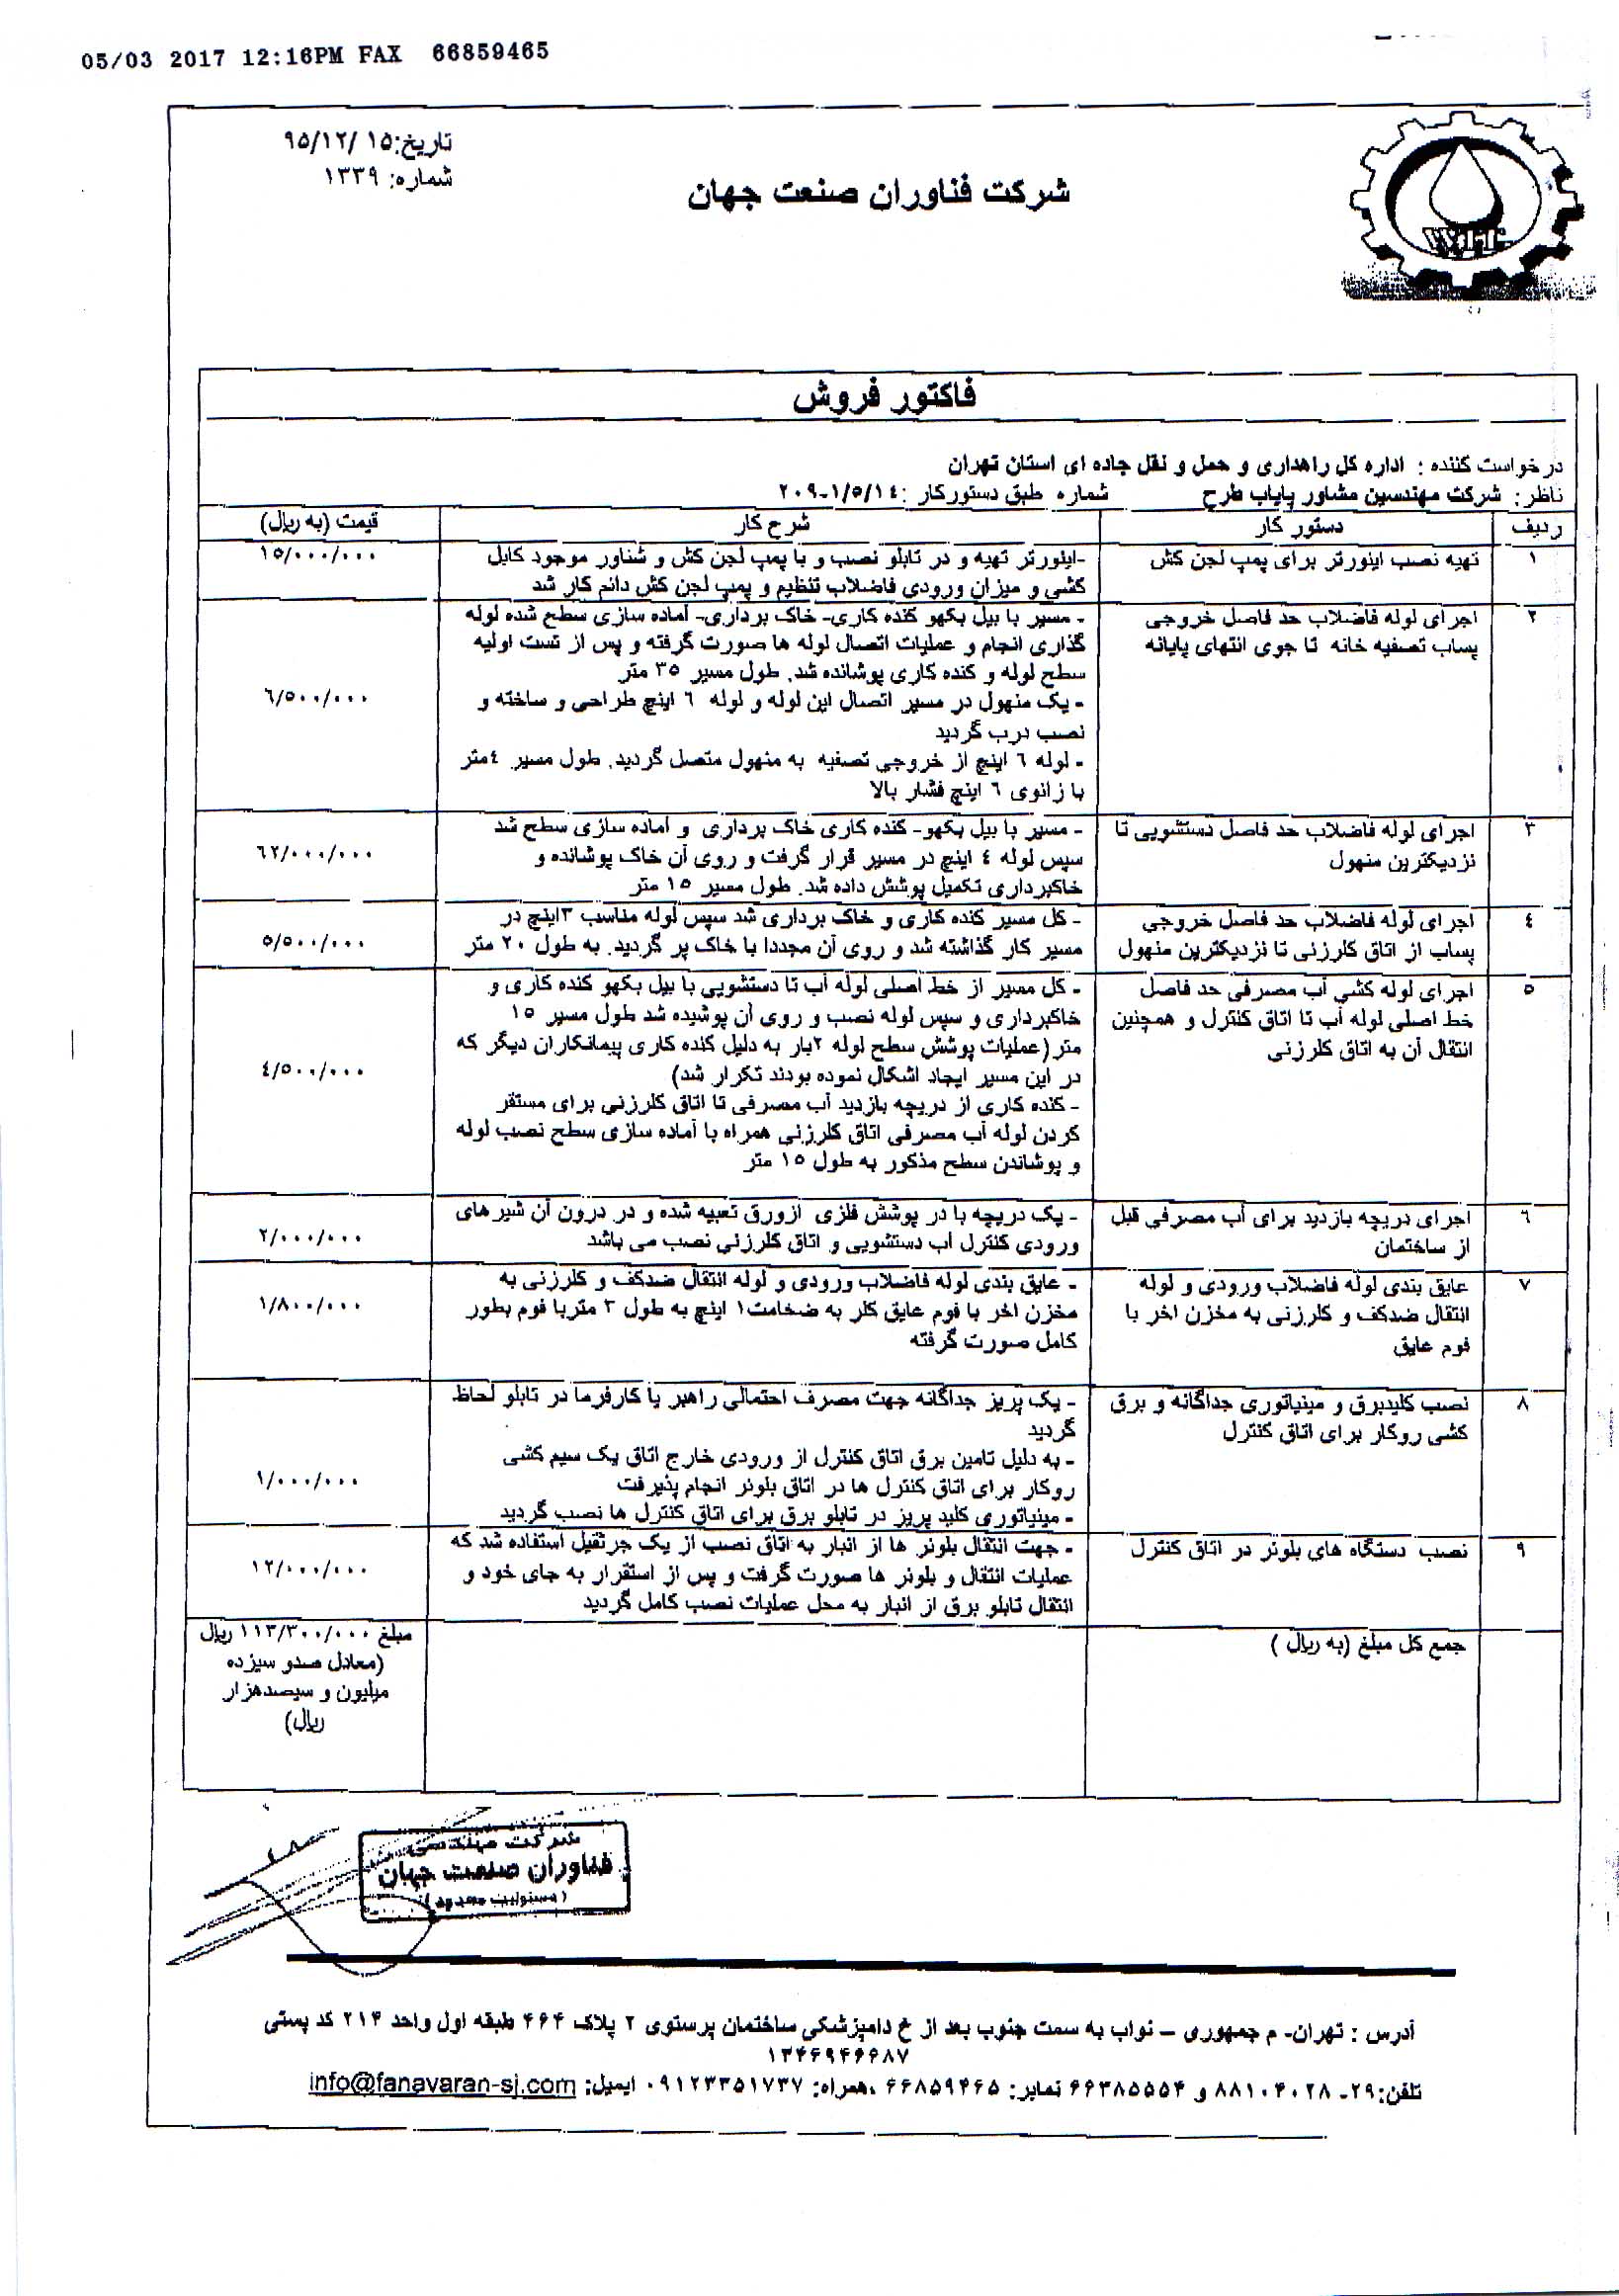 05/03 2017 12:16PM FAX 66859465
تاریخ:۹۵/۱۲/۱۵
شماره: ۱۳۳۹
شرکت فناوران صنعت جهان
فاکتور فروش
درخواست کننده : اداره کل راهداری و حمل و نقل جاده ای استان تهران
ناظر: شرکت مهندسین مشاور پایاب طرح شماره طبق دستورکار :۲۰۹-۱/۵/۱٤
ردیف دستور کار شرح کار قیمت (به ریال)
۱ تهیه نصب اینورتر برای پمپ لجن کش -اینورتر تهیه و در تابلو نصب و با پمپ لجن کش و شناور موجود کابل ۱۵/۰۰۰/۰۰۰
کشی و میزان ورودی فاضلاب تنظیم و پمپ لجن کش دائم کار شد
۲ اجرای لوله فاضلاب حد فاصل خروجی - مسیر با بیل بکهو کنده کاری- خاک برداری- آماده سازی سطح شده لوله
پساب تصفیه خانه تا جوی انتهای پایانه گذاری انجام و عملیات اتصال لوله ها صورت گرفته و پس از تست اولیه
سطح لوله و کنده کاری پوشانده شد. طول مسیر ۳۵ متر
- یک منهول در مسیر اتصال این لوله و لوله ٦ اینچ طراحی و ساخته و ٦/۵۰۰/۰۰۰
نصب درب گردید
- لوله ٦ اینچ از خروجی تصفیه به منهول متصل گردید. طول مسیر ٤متر
با زانوی ٦ اینچ فشار بالا
۳ اجرای لوله فاضلاب حد فاصل دستشویی تا - مسیر با بیل بکهو- کنده کاری خاک برداری و آماده سازی سطح شد
نزدیکترین منهول سپس لوله ٤ اینچ در مسیر قرار گرفت و روی آن خاک پوشانده و ٦۲/۰۰۰/۰۰۰
خاکبرداری تکمیل پوشش داده شد. طول مسیر ۱۵ متر
٤ اجرای لوله فاضلاب حد فاصل خروجی - کل مسیر کنده کاری و خاک برداری شد سپس لوله مناسب ۳اینچ در
پساب از اتاق کلرزنی تا نزدیکترین منهول مسیر کار گذاشته شد و روی آن مجددا با خاک پر گردید. به طول ۲۰ متر ۵/۵۰۰/۰۰۰
۵ اجرای لوله کشی آب مصرفی حد فاصل - کل مسیر از خط اصلی لوله آب تا دستشویی با بیل بکهو کنده کاری و
خط اصلی لوله آب تا اتاق کنترل و همچنین خاکبرداری و سپس لوله نصب و روی آن پوشیده شد طول مسیر ۱۵
انتقال آن به اتاق کلرزنی متر(عملیات پوشش سطح لوله ۲بار به دلیل کنده کاری پیمانکاران دیگر که
در این مسیر ایجاد اشکال نموده بودند تکرار شد) ٤/۵۰۰/۰۰۰
- کنده کاری از دریچه بازدید آب مصرفی تا اتاق کلرزنی برای مستقر
کردن لوله آب مصرفی اتاق کلرزنی همراه با آماده سازی سطح نصب لوله
و پوشاندن سطح مذکور به طول ۱۵ متر
٦ اجرای دریچه بازدید برای آب مصرفی قبل - یک دریچه با در پوشش فلزی ازورق تعبیه شده و در درون آن شیرهای
از ساختمان ورودی کنترل آب دستشویی و اتاق کلرزنی نصب می باشد ۲/۰۰۰/۰۰۰
۷ عایق بندی لوله فاضلاب ورودی و لوله - عایق بندی لوله فاضلاب ورودی و لوله انتقال ضدکف و کلرزنی به
انتقال ضدکف و کلرزنی به مخزن اخر با مخزن اخر با فوم عایق کلر به ضخامت۱ اینچ به طول ۳ متربا فوم بطور ۱/۸۰۰/۰۰۰
فوم عایق کامل صورت گرفته
۸ نصب کلیدبرق و مینیاتوری جداگانه و برق - یک پریز جداگانه جهت مصرف احتمالی راهبر یا کارفرما در تابلو لحاظ
کشی روکار برای اتاق کنترل گردید
- به دلیل تامین برق اتاق کنترل از ورودی خارج اتاق یک سیم کشی
روکار برای اتاق کنترل ها در اتاق بلونر انجام پذیرفت ۱/۰۰۰/۰۰۰
- مینیاتوری کلید پریز در تابلو برق برای اتاق کنترل ها نصب گردید
۹ نصب دستگاه های بلونر در اتاق کنترل - جهت انتقال بلونر ها از انبار به اتاق نصب از یک جرثقیل استفاده شد که
عملیات انتقال و بلونر ها صورت گرفت و پس از استقرار به جای خود و ۱۲/۰۰۰/۰۰۰
انتقال تابلو برق از انبار به محل عملیات نصب کامل گردید
جمع کل مبلغ (به ریال ) مبلغ ۱۱۳/۳۰۰/۰۰۰ ریال
(معادل صدو سیزده
میلیون و سیصدهزار
ریال)
شرکت مهندسی
فناوران صنعت جهان
(مسئولیت محدود)
آدرس : تهران- م جمهوری – نواب به سمت جنوب بعد از خ دامپزشکی ساختمان پرستوی ۲ پلاک ۴۶۴ طبقه اول واحد ۲۱۴ کد پستی
۱۳۴۶۹۴۶۶۸۷
تلفن:۲۹- ۸۸۱۰۴۰۲۸ و ۶۶۳۸۵۵۵۴ نمابر: ۶۶۸۵۹۴۶۵ ،همراه: ۰۹۱۲۳۳۵۱۷۳۷ ایمیل: info@fanavaran-sj.com